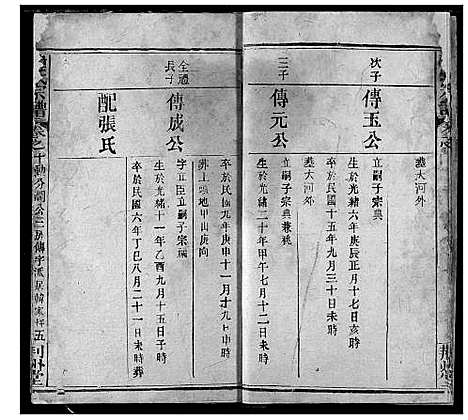 葬大河外
次子
傳玉公
立嗣子宗典
生於光緒六年庚辰正月十七日亥時
卒於民國十五年九月三十日未時
葬大河外
三子
傳元公
立嗣子宗典兼祧
生於光緒二十年甲午七月十二日未時
卒於民國九年庚申十一月十九日申時
地甲山庚向
全禮
長子
傳成公
字正臣立嗣子宗福
生於光緒十一年乙酉九月十五日子時
配張氏
卒於民國六年丁巳八月二十一日未時葬